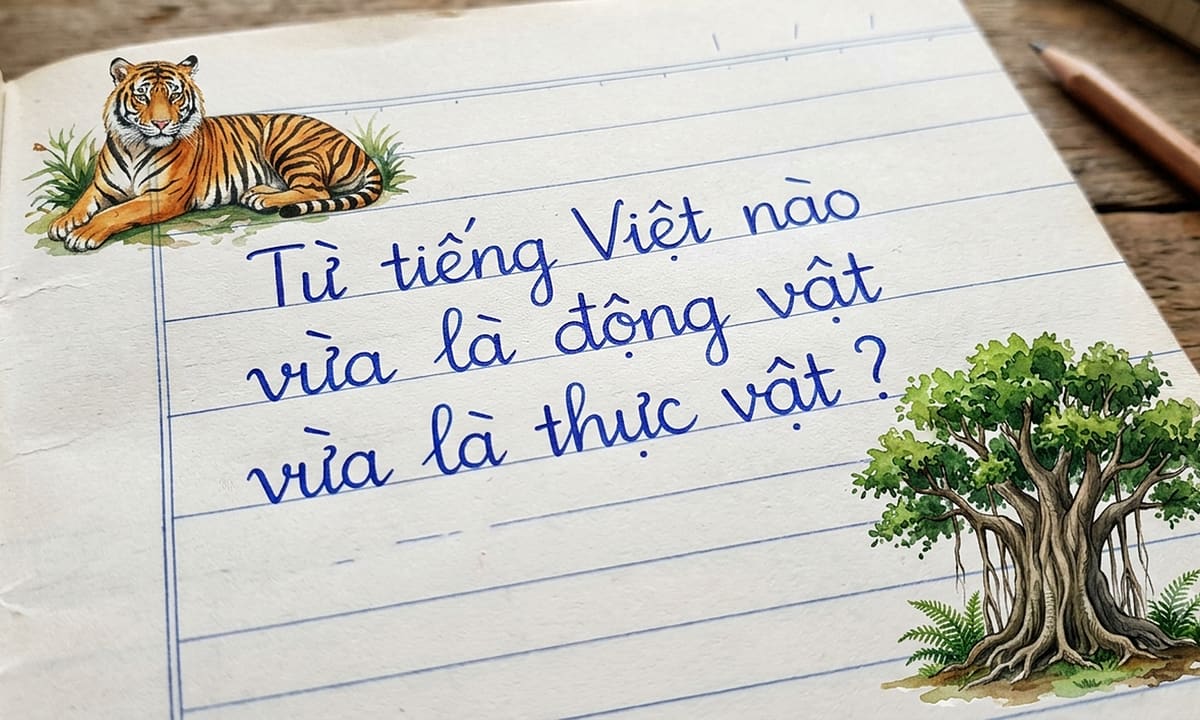 Từ tiếng Việt nào
vừa là động vật
vừa là thực vật ?